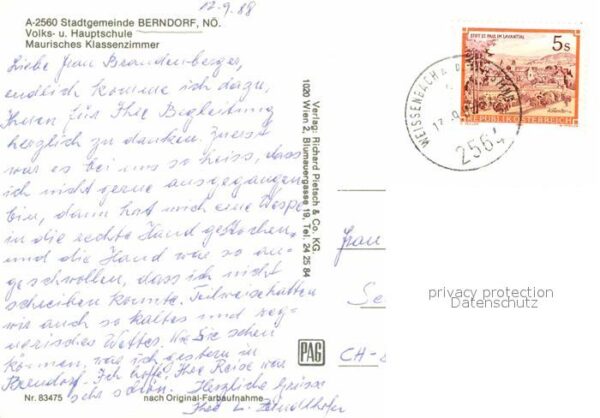 12.9.88
A-2560 Stadtgemeinde BERNDORF, NÖ.
Volks- u. Hauptschule
Maurisches Klassenzimmer
Liebe Frau Brandenberger,
endlich komme ich dazu,
Ihnen für Ihre Begleitung
herzlich zu danken. Zuerst
war es bei uns so heiss, dass
ich nicht gerne ausgegangen
bin, dann hat mich eine Wespe
in die rechte Hand gestochen,
und die Hand war so an-
geschwollen, dass ich nicht
schreiben konnte. Teilweise hatten
wir auch so kaltes und reg-
nerisches Wetter. Wie Sie sehen
können, war ich gestern in
Berndorf. Ich hoffe, Ihre Reise war
sehr schön. Herzliche Grüsse
Ihre L.
Nr. 83475
nach Original-Farbaufnahme
Verlag: Richard Pietsch & Co. KG.
1020 Wien 2, Blumauergasse 19, Tel. 24 25 84
PAG
STIFT ST. PAUL IM LAVANTTAL
5s
REPUBLIK ÖSTERREICH
WEISSENBACH A. D. TRIESTING
2564
Frau
CH-
privacy protection
Datenschutz